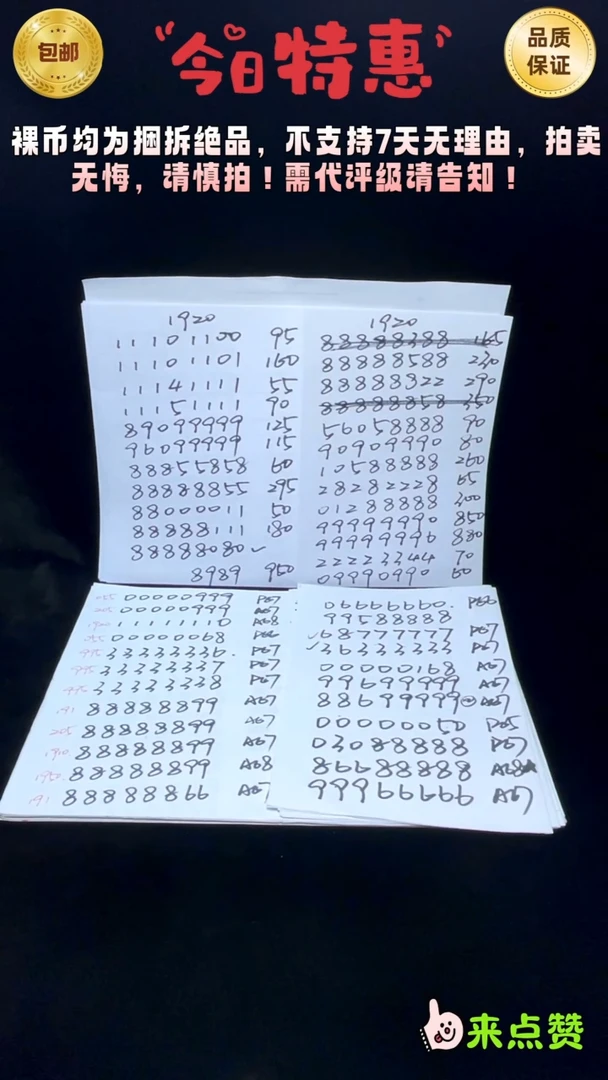 包邮
“今日特惠”
品质
保证
裸币均为捆拆绝品，不支持7天无理由，拍卖
无悔，请慎拍！需代评级请告知！
1920
11101100 95
11101101 160
11141111 55
11151111 90
89099999 125
96099999 115
88855858 60
88888855 295
88000011 50
88888111 180
88888080 ✓
8989 950
1920
88888388 165
88888588 230
88888322 290
88888858 350
56058888 90
90909990 80
10588888 260
28282228 65
01288888 300
99999990 850
99999996 880
22223344 70
09990990 60
00000999 P67
205 00000999 A67
1920 11111110 A68
00000068 P66
995 33333336. P67
995 33333337 P67
995 33333338 P67
191 88888899 A67
205 88888899 A67
1910 88888899 A67
1950 88888899 A68
191 88888866 A67
06666660. P66
99588888
✓68777777 P67
✓36333333 P67
00000168 A67
99699999 A67
88699999 A67
00000050 P65
03088888 P67
86688888 A68
99966666 A67
来点赞